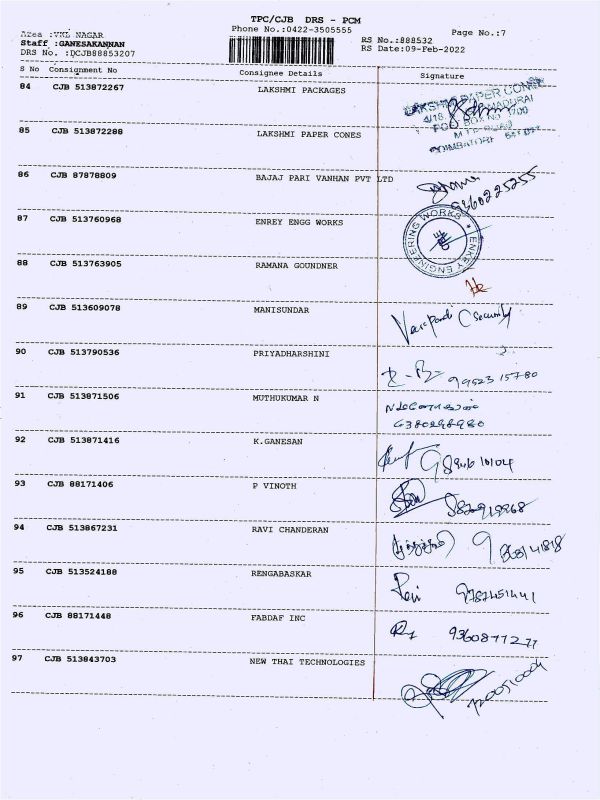 TPC/CJB DRS - PCM
Area :VKL NAGAR
Phone No.:0422-3505555
Page No.:7
Staff :GANESAKANNAN
RS No.:888532
DRS No. :DCJB88853207
RS Date:09-Feb-2022
S No Consignment No Consignee Details Signature
84 CJB 513872267 LAKSHMI PACKAGES
LAKSHMI PAPER CONES
85 CJB 513872288 LAKSHMI PAPER CONES
86 CJB 87878809 BAJAJ PARI VANHAN PVT LTD
9360225255
87 CJB 513760968 ENREY ENGG WORKS
ENKEY ENGINEERING WORKS
88 CJB 513763905 RAMANA GOUNDNER
89 CJB 513609078 MANISUNDAR
(Security
90 CJB 513790536 PRIYADHARSHINI
9952315780
91 CJB 513871506 MUTHUKUMAR N
92 CJB 513871416 K.GANESAN
93 CJB 88171406 P VINOTH
94 CJB 513867231 RAVI CHANDERAN
95 CJB 513524188 RENGABASKAR
9787451441
96 CJB 88171448 FABDAF INC
9360877277
97 CJB 513843703 NEW THAI TECHNOLOGIES